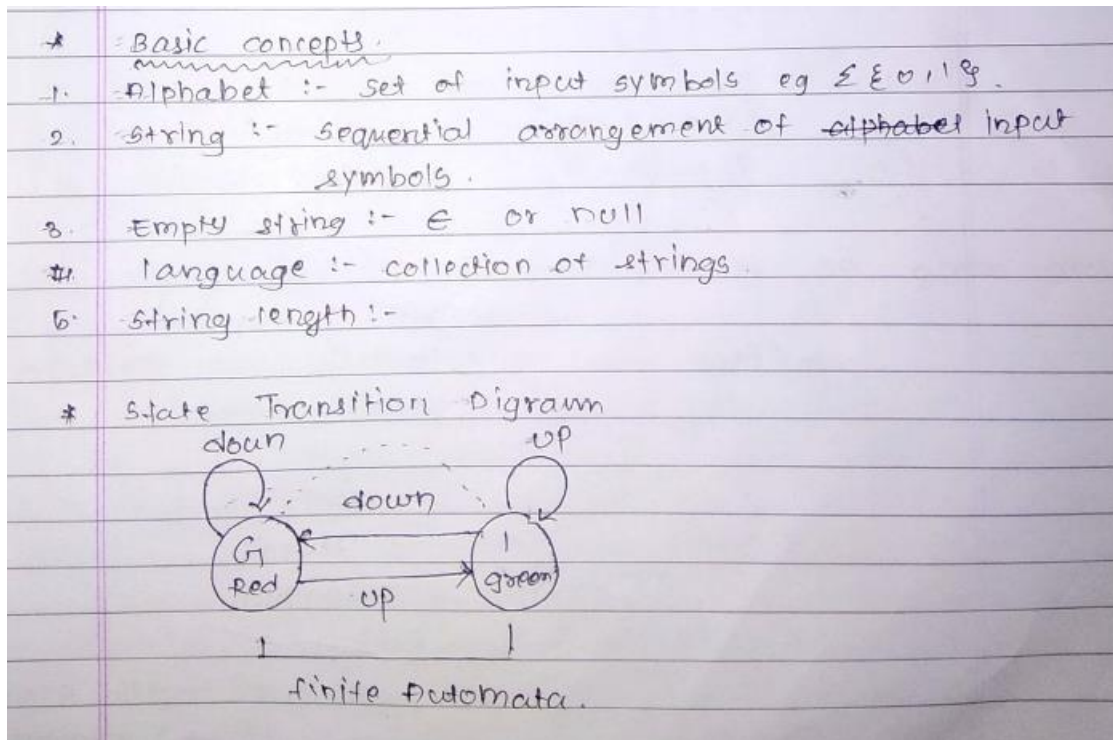 * Basic concepts.
1. Alphabet :- set of input symbols eg Σ {0,1}.
2. string :- sequential arrangement of alphabet input
symbols.
3. Empty string :- ϵ or null
4. language :- collection of strings.
5. string length :-
* State Transition Digraum
doun
up
down
G
Red
1
green
up
finite Automata.